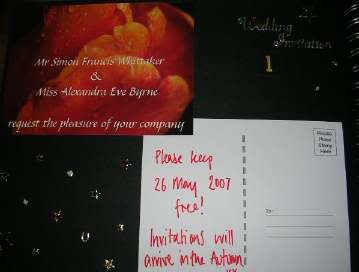 Wedding
Invitation
1
Mr Simon Francis Whittaker
&
Miss Alexandra Eve Byrne
request the pleasure of your company
Please keep
26 May 2007
free!
Invitations will
arrive in the Autumn
xx
Please
Stamp
Here
To: